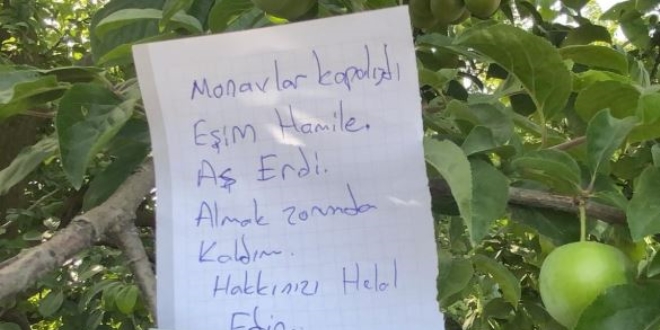 Manavlar kapalıydı
Eşim Hamile.
Aş Erdi.
Almak zorunda
Kaldım.
Hakkınızı Helal
Edin..